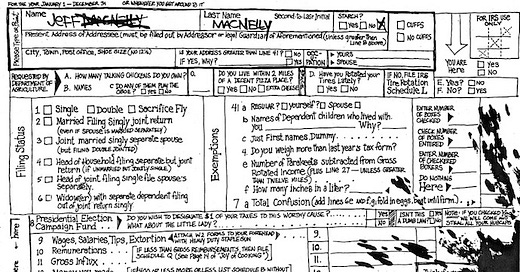 FOR THE YEAR JANUARY 1 — DECEMBER 34 OR WHENEVER YOU GET AROUND TO IT
Please Type or Blow
Name
JEFF MACNELLY
Last Name
MACNELLY
Second to Last Initial
STARCH?
YES NO
CUFFS
NO CUFFS
FOR IRS USE ONLY
Present Address of Addressee (Must be filled out by Addressor or legal Guardian of Aforementioned (unless greater than Line 9 above)
City, Town, Post Office, Shoe Size (No. 12½)
IS YOUR ADDRESS GREATER THAN LINE 41?
NO
IF YES, WHY?
YES NO
OCCUPATION
YOURS
SPOUSE
YOU ARE Here
YES
NO
REQUESTED BY DEPARTMENT OF AGRICULTURE
A. HOW MANY TALKING CHICKENS DO YOU OWN?
B. NAMES
C. DO ANY OF THEM PLAY THE OBOE?
YES NO
DO YOU LIVE WITHIN 2 MILES OF A DECENT PIZZA PLACE?
YES NO EXTRA CHEESE
D. Have you Rotated your Tires Lately?
YES NO
IF NO, FILE IRS Tire Rotation Schedule L
E. Yes?
F. No?
YES NO
Filing Status
1 Single Double Sacrifice Fly
2 Married Filing Singly joint return
(EVEN IF SPOUSE IS MARRIED SEPARATELY)
3 Joint, married singly separate spouse
(BUT FILING DOUBLE JOINTED)
4 Head of Household filing separate but joint return (IF UNMARRIED BUT JOINTLY SINGLE)
5 Head of joint filing, single file spouse's separately.
6 Widow(er) with separate dependent filing out of joint return singly
Exemptions
41 a REGULAR? YOURSELF? SPOUSE
b Names of Dependent children who lived with you Why?
c Just First names, Dummy.
d Do you weigh more than last year's tax form?
e Number of Parakeets subtracted from Gross Rotated Income (PLUS LINE 27 — UNLESS GREATER THAN TWELVE MILES)
f How many inches in a liter?
7 a Total Confusion (add lines 6e and f, fold in eggs, beat until firm)
ENTER NUMBER OF BOXES CHECKED
CHECK NUMBER OF BOXES ENTERED
ENTER NUMBER OF CHECKERED BOXERS
DO NOTHING Here
Presidential Election Campaign Fund
DO YOU WISH TO DESIGNATE $1 OF YOUR TAXES TO THIS WORTHY CAUSE?
WHAT ABOUT THE LITTLE LADY?
YES NO
ISN'T THIS A DUMB LAW?
YES
NO
NOTE: IF YOU CHECKED NO WE WILL COME AND STEAL ALL YOUR HUBCAPS
9 Wages, Salaries, Tips, Extortion
ATTACH W2 FORMS TO YOUR FOREHEAD WITH HEAVY DUTY STAPLEGUN
9.
10 Remunerations
IF LESS THAN GROSS REIMBURSEMENTS, THEN FILE SCHEDULE Q (See Page 19 of "Joy of Cooking")
10.
11 Gross Influx
11.